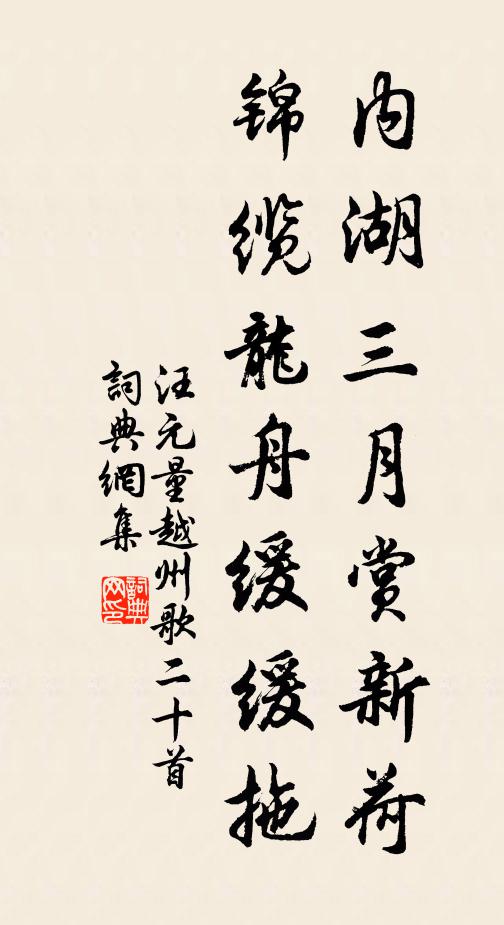 内湖三月赏新荷
锦缆龍舟缓缓拖
汪元量越州歌二十首
詞典網集
詞典網印